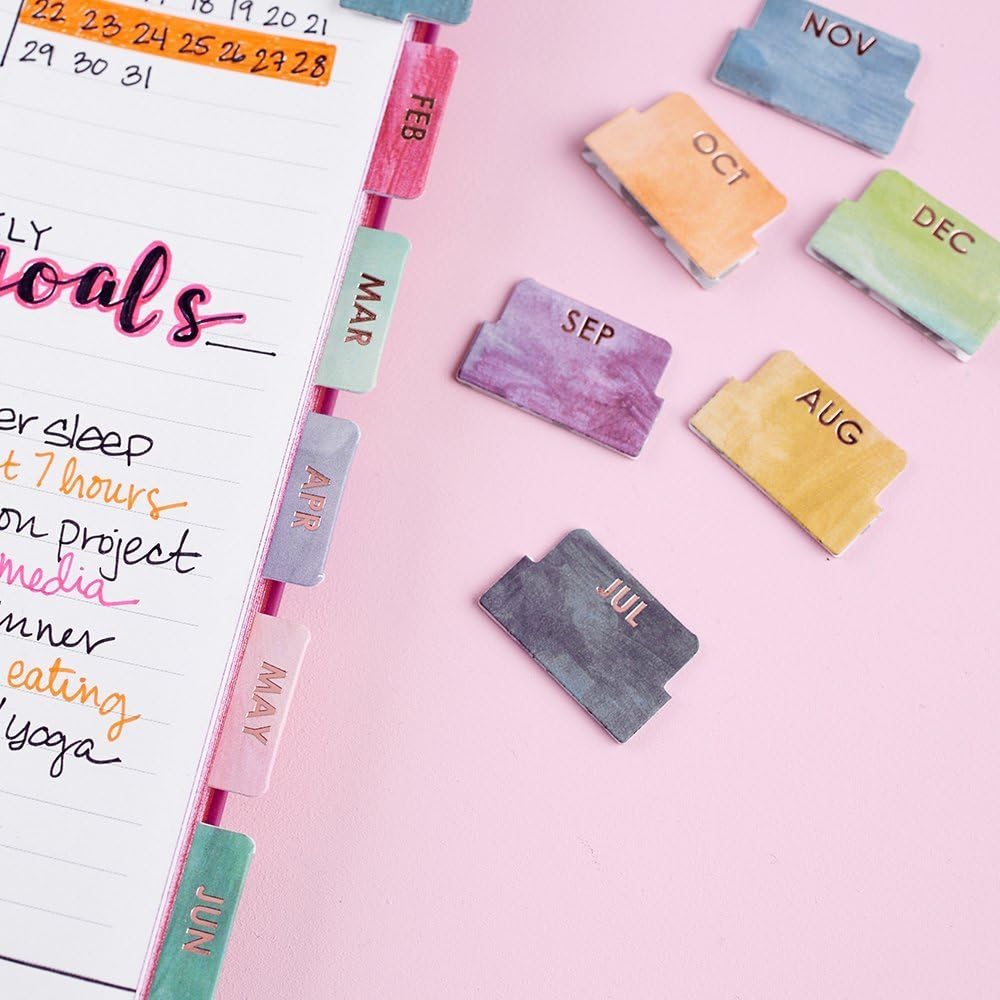 18 19 20 21
22 23 24 25 26 27 28
29 30 31
goals
er sleep
t 7 hours
on project
media
eating
yoga
FEB
MAR
APR
MAY
JUN
NOV
OCT
DEC
SEP
AUG
JUL